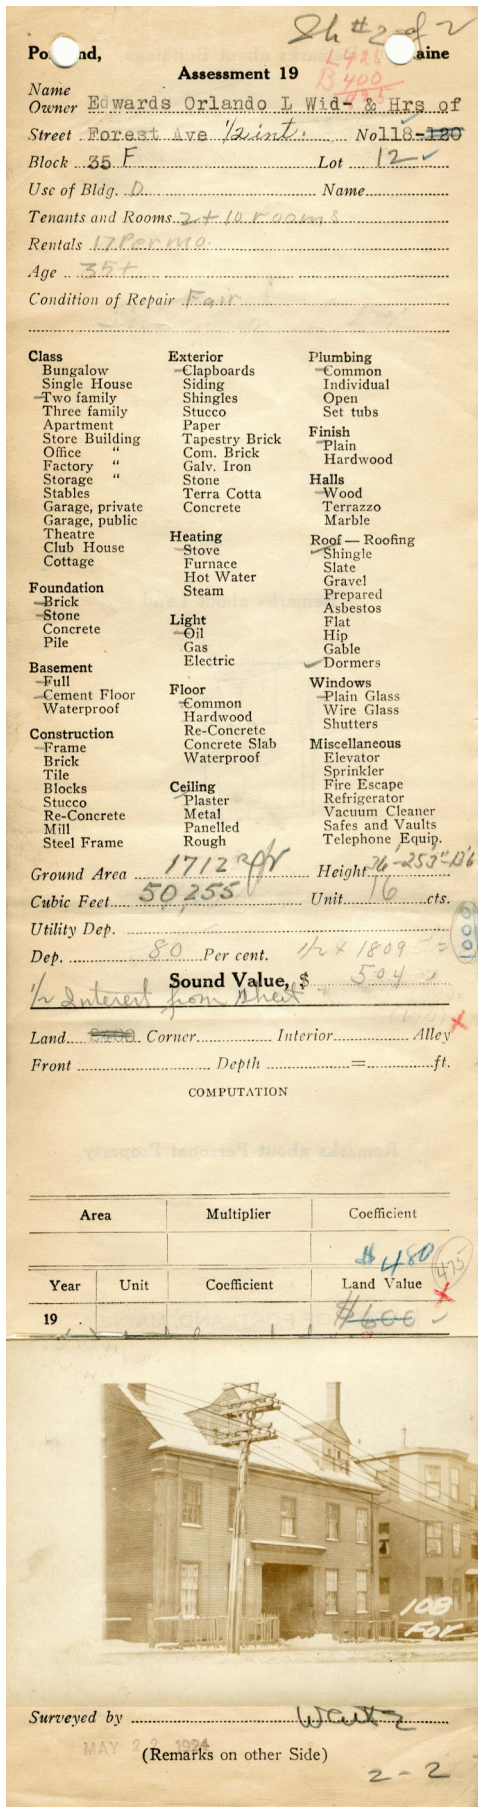 Sh #2 of 2
Po nd, aine
L 425
B 400
Assessment 19
825
Name
Owner Edwards Orlando L Wid- & Hrs of
Street Forest Ave 1/2 int. No 118-120
Block 35 F Lot 12
Use of Bldg. D Name
Tenants and Rooms 2 + 10 rooms
Rentals 17 Per mo.
Age 35+
Condition of Repair Fair
Class
Bungalow
Single House
Two family
Three family
Apartment
Store Building
Office "
Factory "
Storage "
Stables
Garage, private
Garage, public
Theatre
Club House
Cottage
Foundation
Brick
Stone
Concrete
Pile
Basement
Full
Cement Floor
Waterproof
Construction
Frame
Brick
Tile
Blocks
Stucco
Re-Concrete
Mill
Steel Frame
Exterior
Clapboards
Siding
Shingles
Stucco
Paper
Tapestry Brick
Com. Brick
Galv. Iron
Stone
Terra Cotta
Concrete
Heating
Stove
Furnace
Hot Water
Steam
Light
Oil
Gas
Electric
Floor
Common
Hardwood
Re-Concrete
Concrete Slab
Waterproof
Ceiling
Plaster
Metal
Panelled
Rough
Plumbing
Common
Individual
Open
Set tubs
Finish
Plain
Hardwood
Halls
Wood
Terrazzo
Marble
Roof — Roofing
Shingle
Slate
Gravel
Prepared
Asbestos
Flat
Hip
Gable
Dormers
Windows
Plain Glass
Wire Glass
Shutters
Miscellaneous
Elevator
Sprinkler
Fire Escape
Refrigerator
Vacuum Cleaner
Safes and Vaults
Telephone Equip.
Ground Area 1712 Height
Cubic Feet 50,255 Unit 16 cts.
Utility Dep.
1000
Dep. 80 Per cent. 1/2 x 1809 =
Sound Value, $ 504
1/2 Interest from Sheet
Land 2400 Corner Interior Alley
Front Depth = ft.
COMPUTATION
Area Multiplier Coefficient
$ 480
475
Year Unit Coefficient Land Value
19 . $600
108
For
Surveyed by
MAY 22 1924
(Remarks on other Side)
2-2